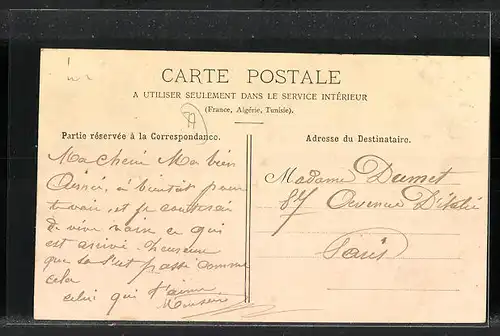 CARTE POSTALE
A UTILISER SEULEMENT DANS LE SERVICE INTÉRIEUR
(France, Algérie, Tunisie).
Partie réservée à la Correspondance.
Ma chérie Ma bien
Aimée, à bientôt pour
te voir, et je
de vive voix ce qui
est arrivé. heureuse
que ça s'est passé comme
cela
celui qui t'aime
Adresse du Destinataire.
Madame Dumet
87 Avenue D'Italie
Paris